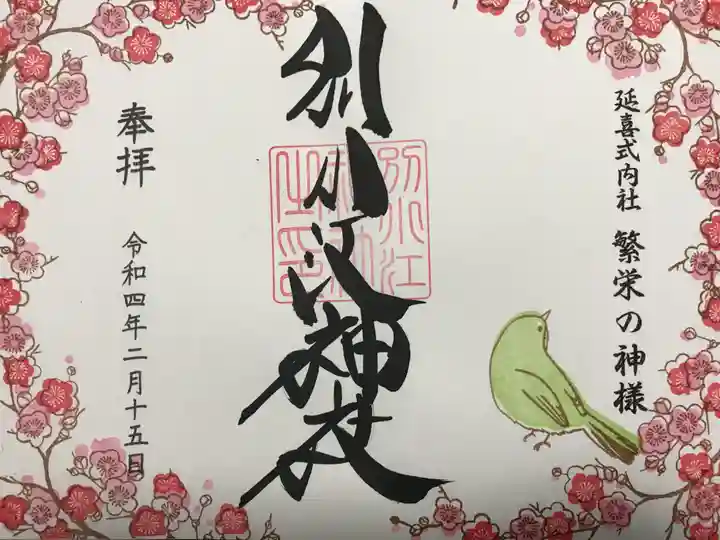 延喜式内社 繁栄の神様
別小江神社
奉拝
令和四年二月十五日